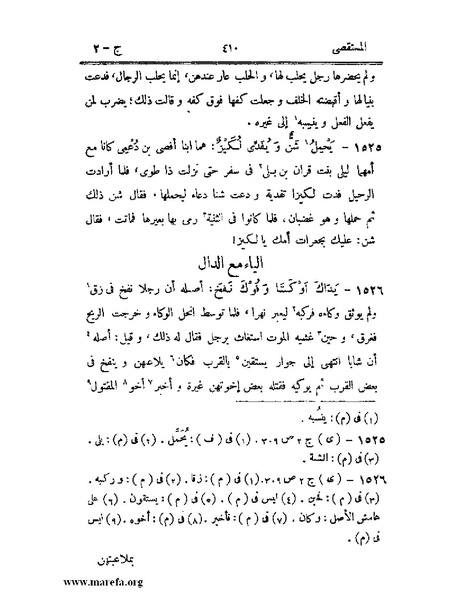 المستقصى ٤١٠ ج - ٢
ولم يحضرها رجل يحلب لها، و الحلب عار عندهن، إنما يحلب الرجال، فدعت
بنيالها و أقبضته الخلف و جعلت كفها فوق كفه و قالت ذلك؛ يضرب لمن
يفعل الفعل و ينسبه إلى غيره.
١٥٢٥ - يَحْمِلُ ١ شَنٌّ وَ يُفَدَّى لُكَيْزٌ: هما ابنا أفصى بن دُعْمِى كانا مع
أمهما ليلى بنت قران بن بلى ٢ فى سفر حتى نزلت ذا طوى، فلما أرادت
الرحيل فدت لكيزا تفدية و دعت شنا دعاء ليحملها. فقال شن ذلك
ثم حملها و هو غضبان، فلما كانوا فى الثنية ٣ رمى بها بعيرها فماتت، فقال
شن: عليك بجعرات أمك يا لكيز!
الياء مع الدال
١٥٢٦ - يَدَاكَ أَوْكَتَا وَ فُوكَ نَفَخَ: أصله أن رجلا نفخ فى زق ١
ولم يوثق وكاءه فركبه ٢ ليعبر نهرا، فلما توسط انحل الوكاء و خرجت الريح
فغرق، و حين ٣ غشيه الموت استغاث برجل فقال له ذلك، و قيل: أصله ٤
أن شابا انتهى إلى جوار يستقين ٥ بالقرب فكان ٦ يلاعبهن و ينفخ فى
بعض القرب ثم يوكيه فقتله بعض إخوتهن غيرة و أخبر ٧ أخو ٨ المقتول ٩
(١) فى (م): ينسبه.
١٥٢٥ - (ى) ج ٢ ص ٣٠٩. (١) فى (ف): يُحْمَل. (٢) فى (م): بلى.
(٣) فى (م):
١٥٢٦ - (ى) ج ٢ ص ٣٠٩. (١) فى (م): زقا. (٢) فى (م): و ركبه.
(٣) فى (م): فحين. (٤) ليس فى (م). (٥) فى (م): يستقون. (٦) على
هامش الأصل: وكان. (٧) فى (م): فأخبر. (٨) فى (م): أخوه. (٩) ليس
فى (م).
بملاعبتهن
www.marefa.org